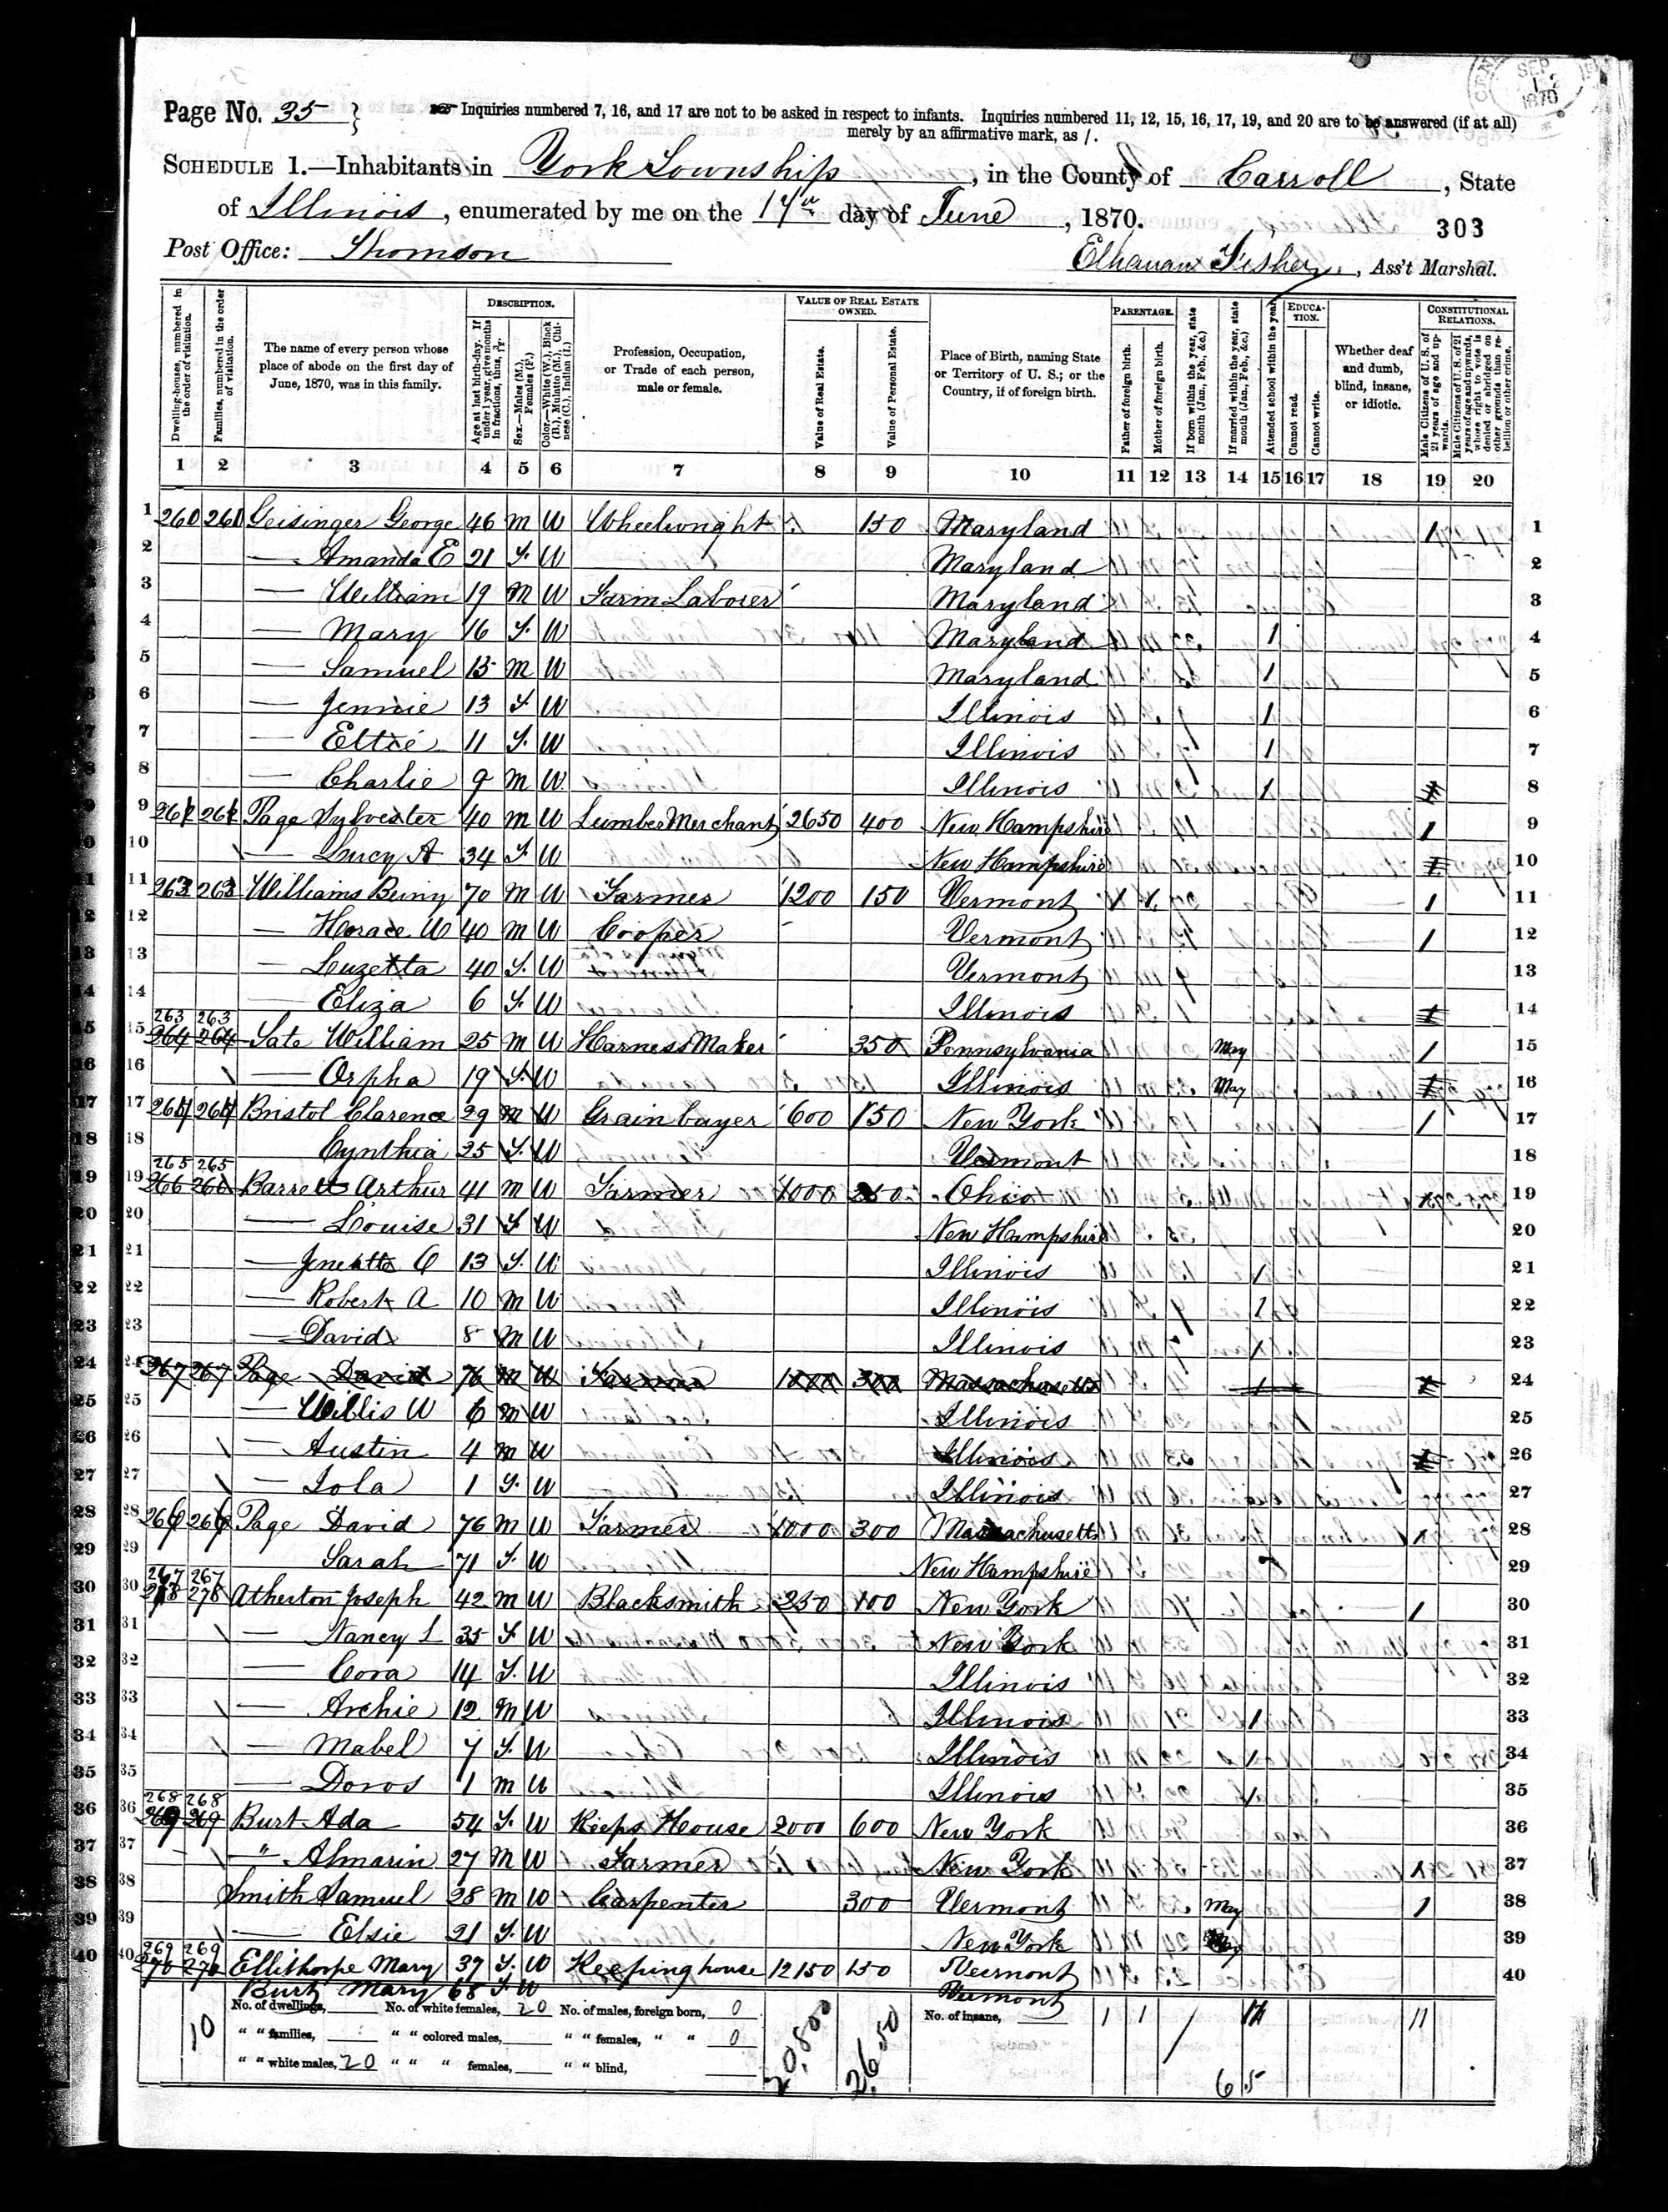 Page No. 35
Inquiries numbered 7, 16, and 17 are not to be asked in respect to infants. Inquiries numbered 11, 12, 15, 16, 17, 19, and 20 are to be answered (if at all)
merely by an affirmative mark, as /.
SEP
1870
SCHEDULE 1.—Inhabitants in York Township, in the County of Carroll, State
of Illinois, enumerated by me on the 17th day of June, 1870.
303
Post Office: Thomson
Elhanan Fisher, Ass't Marshal.
Dwelling-houses, numbered in the order of visitation.
Families, numbered in the order of visitation.
The name of every person whose place of abode on the first day of June, 1870, was in this family.
DESCRIPTION.
Age at last birth-day. If under 1 year, give months in fractions, thus, 3/12.
Sex.—Males (M.), Females (F.)
Color.—White (W.), Black (B.), Mulatto (M.), Chinese (C.), Indian (I.)
Profession, Occupation, or Trade of each person, male or female.
VALUE OF REAL ESTATE OWNED.
Value of Real Estate.
Value of Personal Estate.
Place of Birth, naming State or Territory of U. S.; or the Country, if of foreign birth.
PARENTAGE.
Father of foreign birth.
Mother of foreign birth.
If born within the year, state month (Jan., Feb., &c.)
If married within the year, state month (Jan., Feb., &c.)
Attended school within the year.
EDUCATION.
Cannot read.
Cannot write.
Whether deaf and dumb, blind, insane, or idiotic.
CONSTITUTIONAL RELATIONS.
Male Citizens of U. S. of 21 years of age and upwards.
Male Citizens of U. S. of 21 years of age and upwards, whose right to vote is denied or abridged on other grounds than rebellion or other crime.
1 2 3 4 5 6 7 8 9 10 11 12 13 14 15 16 17 18 19 20
1 260 260 Geisinger George 46 M W Wheelwright 150 Maryland 1 1
2 — Amanda E 21 F W Maryland 2
3 — William 19 M W Farm Laborer Maryland 3
4 — Mary 16 F W Maryland 1 4
5 — Samuel 15 M W Maryland 1 5
6 — Jennie 13 F W Illinois 1 6
7 — Ettie 11 F W Illinois 1 7
8 — Charlie 9 M W Illinois 1 8
9 261 261 Page Sylvester 40 M W Lumber Merchant 2650 400 New Hampshire 1 9
10 — Lucy A 34 F W New Hampshire 10
11 262 262 Williams Benj 70 M W Farmer 1200 150 Vermont 1 11
12 — Horace W 40 M W Cooper Vermont 1 12
13 — Luzetta 40 F W Vermont 13
14 — Eliza 6 F W Illinois 14
263 263
15 264 264 William 25 M W Harness Maker 350 Pennsylvania May 1 15
16 — Orpha 19 F W Illinois May 16
17 264 264 Bristol Clarence 29 M W Grain buyer 600 150 New York 1 17
18 Cynthia 25 F W Vermont 18
265 265
19 266 266 Barrett Arthur 41 M W Farmer 4000 Ohio 1 19
20 — Louise 31 F W New Hampshire 20
21 — 13 F W Illinois 1 21
22 — Robert A 10 M W Illinois 1 22
23 — David 8 M W Illinois 1 23
24 267 267 Page David 76 M W Farmer 300 Massachusetts 24
25 — Willis W 6 M W Illinois 25
26 — Austin 4 M W Illinois 26
27 — Iola 1 F W Illinois 27
28 266 266 Page David 76 M W Farmer 4000 300 Massachusetts 1 28
29 Sarah 71 F W New Hampshire 29
267 267
30 278 278 Atherton Joseph 42 M W Blacksmith 250 100 New York 1 30
31 — Nancy L 35 F W New York 31
32 — Cora 14 F W Illinois 32
33 — Archie 12 M W Illinois 1 33
34 — Mabel 7 F W Illinois 1 34
35 — 1 M W Illinois 35
268 268
36 269 269 Burt Ada 54 F W Keeps House 2000 600 New York 36
37 — " Almarin 27 M W Farmer New York 1 37
38 Smith Samuel 28 M W Carpenter 300 Vermont May 1 38
39 — Elsie 21 F W New York May 39
269 269
40 270 270 Ellithorpe Mary 37 F W Keeping house 12150 150 Vermont 40
Burt Mary 68 F W Vermont
No. of dwellings, No. of white females, 20 No. of males, foreign born, 0 No. of insane,
10 " " families, " " colored males, " " females, " " 0
" " white males, 20 " " " females, " " blind,
20,800 2650 1 1 1 11
6 15